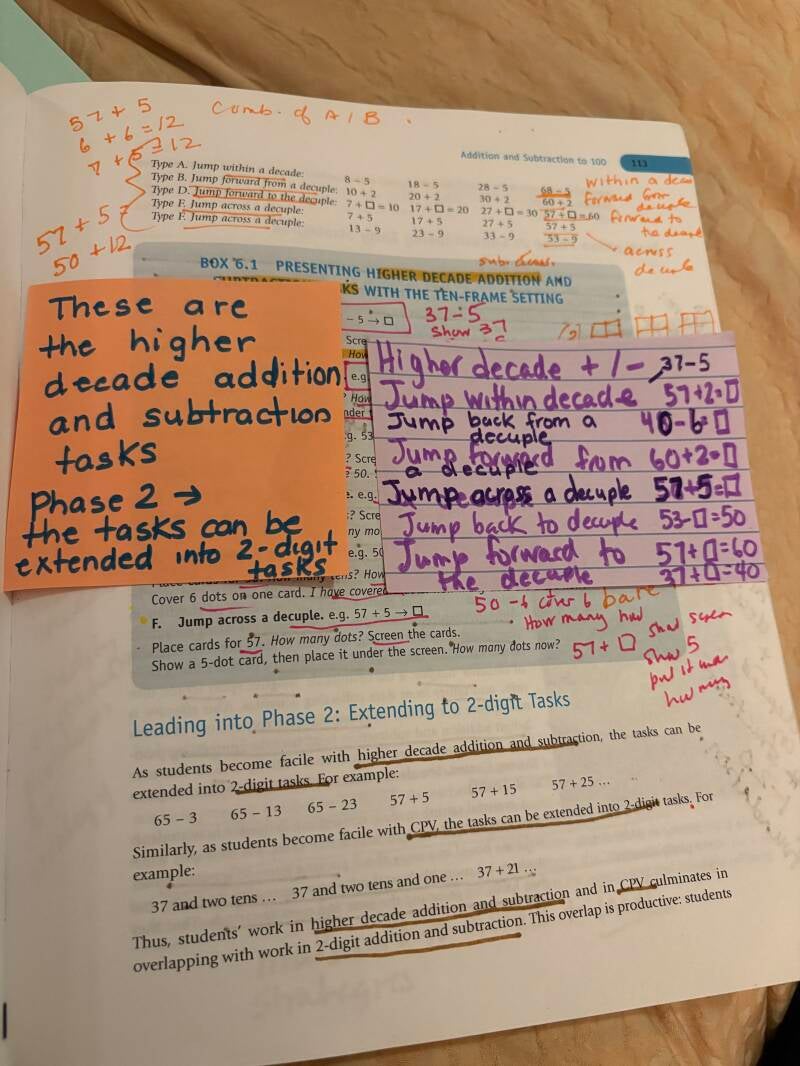 57 + 5
6 + 6 = 12
7 + 5 = 12
Comb. of A / B
57 + 57
50 + 12
Addition and Subtraction to 100 113
Type A. Jump within a decade: 8 – 5 18 – 5 28 – 5 68 – 5
Type B. Jump forward from a decuple: 10 + 2 20 + 2 30 + 2 60 + 2
Type D. Jump forward to the decuple: 7 + □ = 10 17 + □ = 20 27 + □ = 30 57 + □ = 60
Type E. Jump across a decuple: 7 + 5 17 + 5 27 + 5 57 + 5
Type F. Jump across a decuple: 13 – 9 23 – 9 33 – 9 53 – 9
within a deca
forward from
decuple
forward to
the decuple
across
decuple
BOX 6.1 PRESENTING HIGHER DECADE ADDITION AND
KS WITH THE TEN-FRAME SETTING
37-5
Show 37
– 5 → □
These are
the higher
decade addition
and subtraction
tasks
Phase 2 →
the tasks can be
extended into 2-digit
tasks
Higher decade + / – 37-5
Jump within decade 57+2=□
Jump back from a decuple 40-6=□
Jump forward from a decuple 60+2=□
Jump across a decuple 57+5=□
Jump back to decuple 53-□=50
Jump forward to the decuple 57+□=60
37+□=40
Cover 6 dots on one card. I have covered
50 -6 cover 6
How many
F. Jump across a decuple. e.g. 57 + 5 → □
Place cards for 57. How many dots? Screen the cards.
Show a 5-dot card, then place it under the screen. How many dots now?
57 + □
show 5
Leading into Phase 2: Extending to 2-digit Tasks
As students become facile with higher decade addition and subtraction, the tasks can be
extended into 2-digit tasks. For example:
65 – 3 65 – 13 65 – 23 57 + 5 57 + 15 57 + 25 …
Similarly, as students become facile with CPV, the tasks can be extended into 2-digit tasks. For
example:
37 and two tens … 37 and two tens and one … 37 + 21 …
Thus, students' work in higher decade addition and subtraction and in CPV culminates in
overlapping with work in 2-digit addition and subtraction. This overlap is productive: students